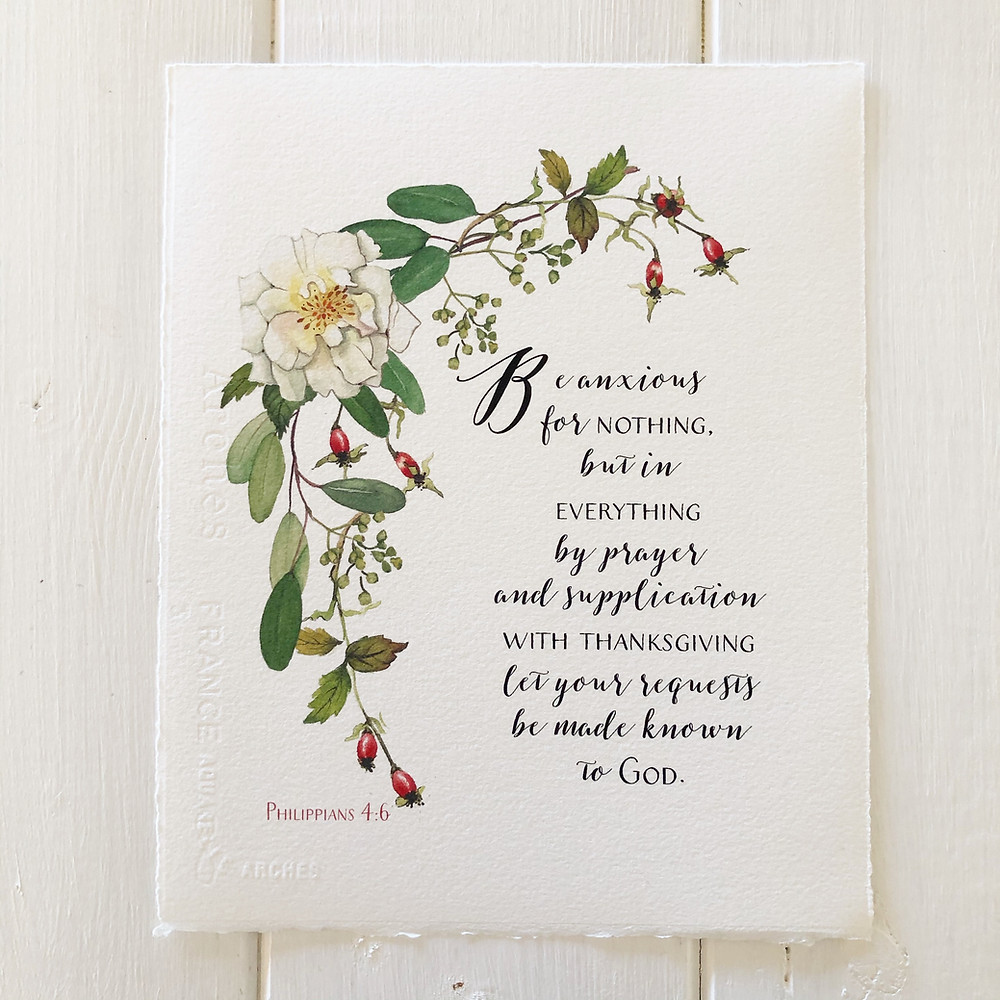 Be anxious
for NOTHING,
but in
EVERYTHING
by prayer
and supplication
WITH THANKSGIVING
let your requests
be made known
to GOD.
PHILIPPIANS 4:6
Arches FRANCE
ARCHES